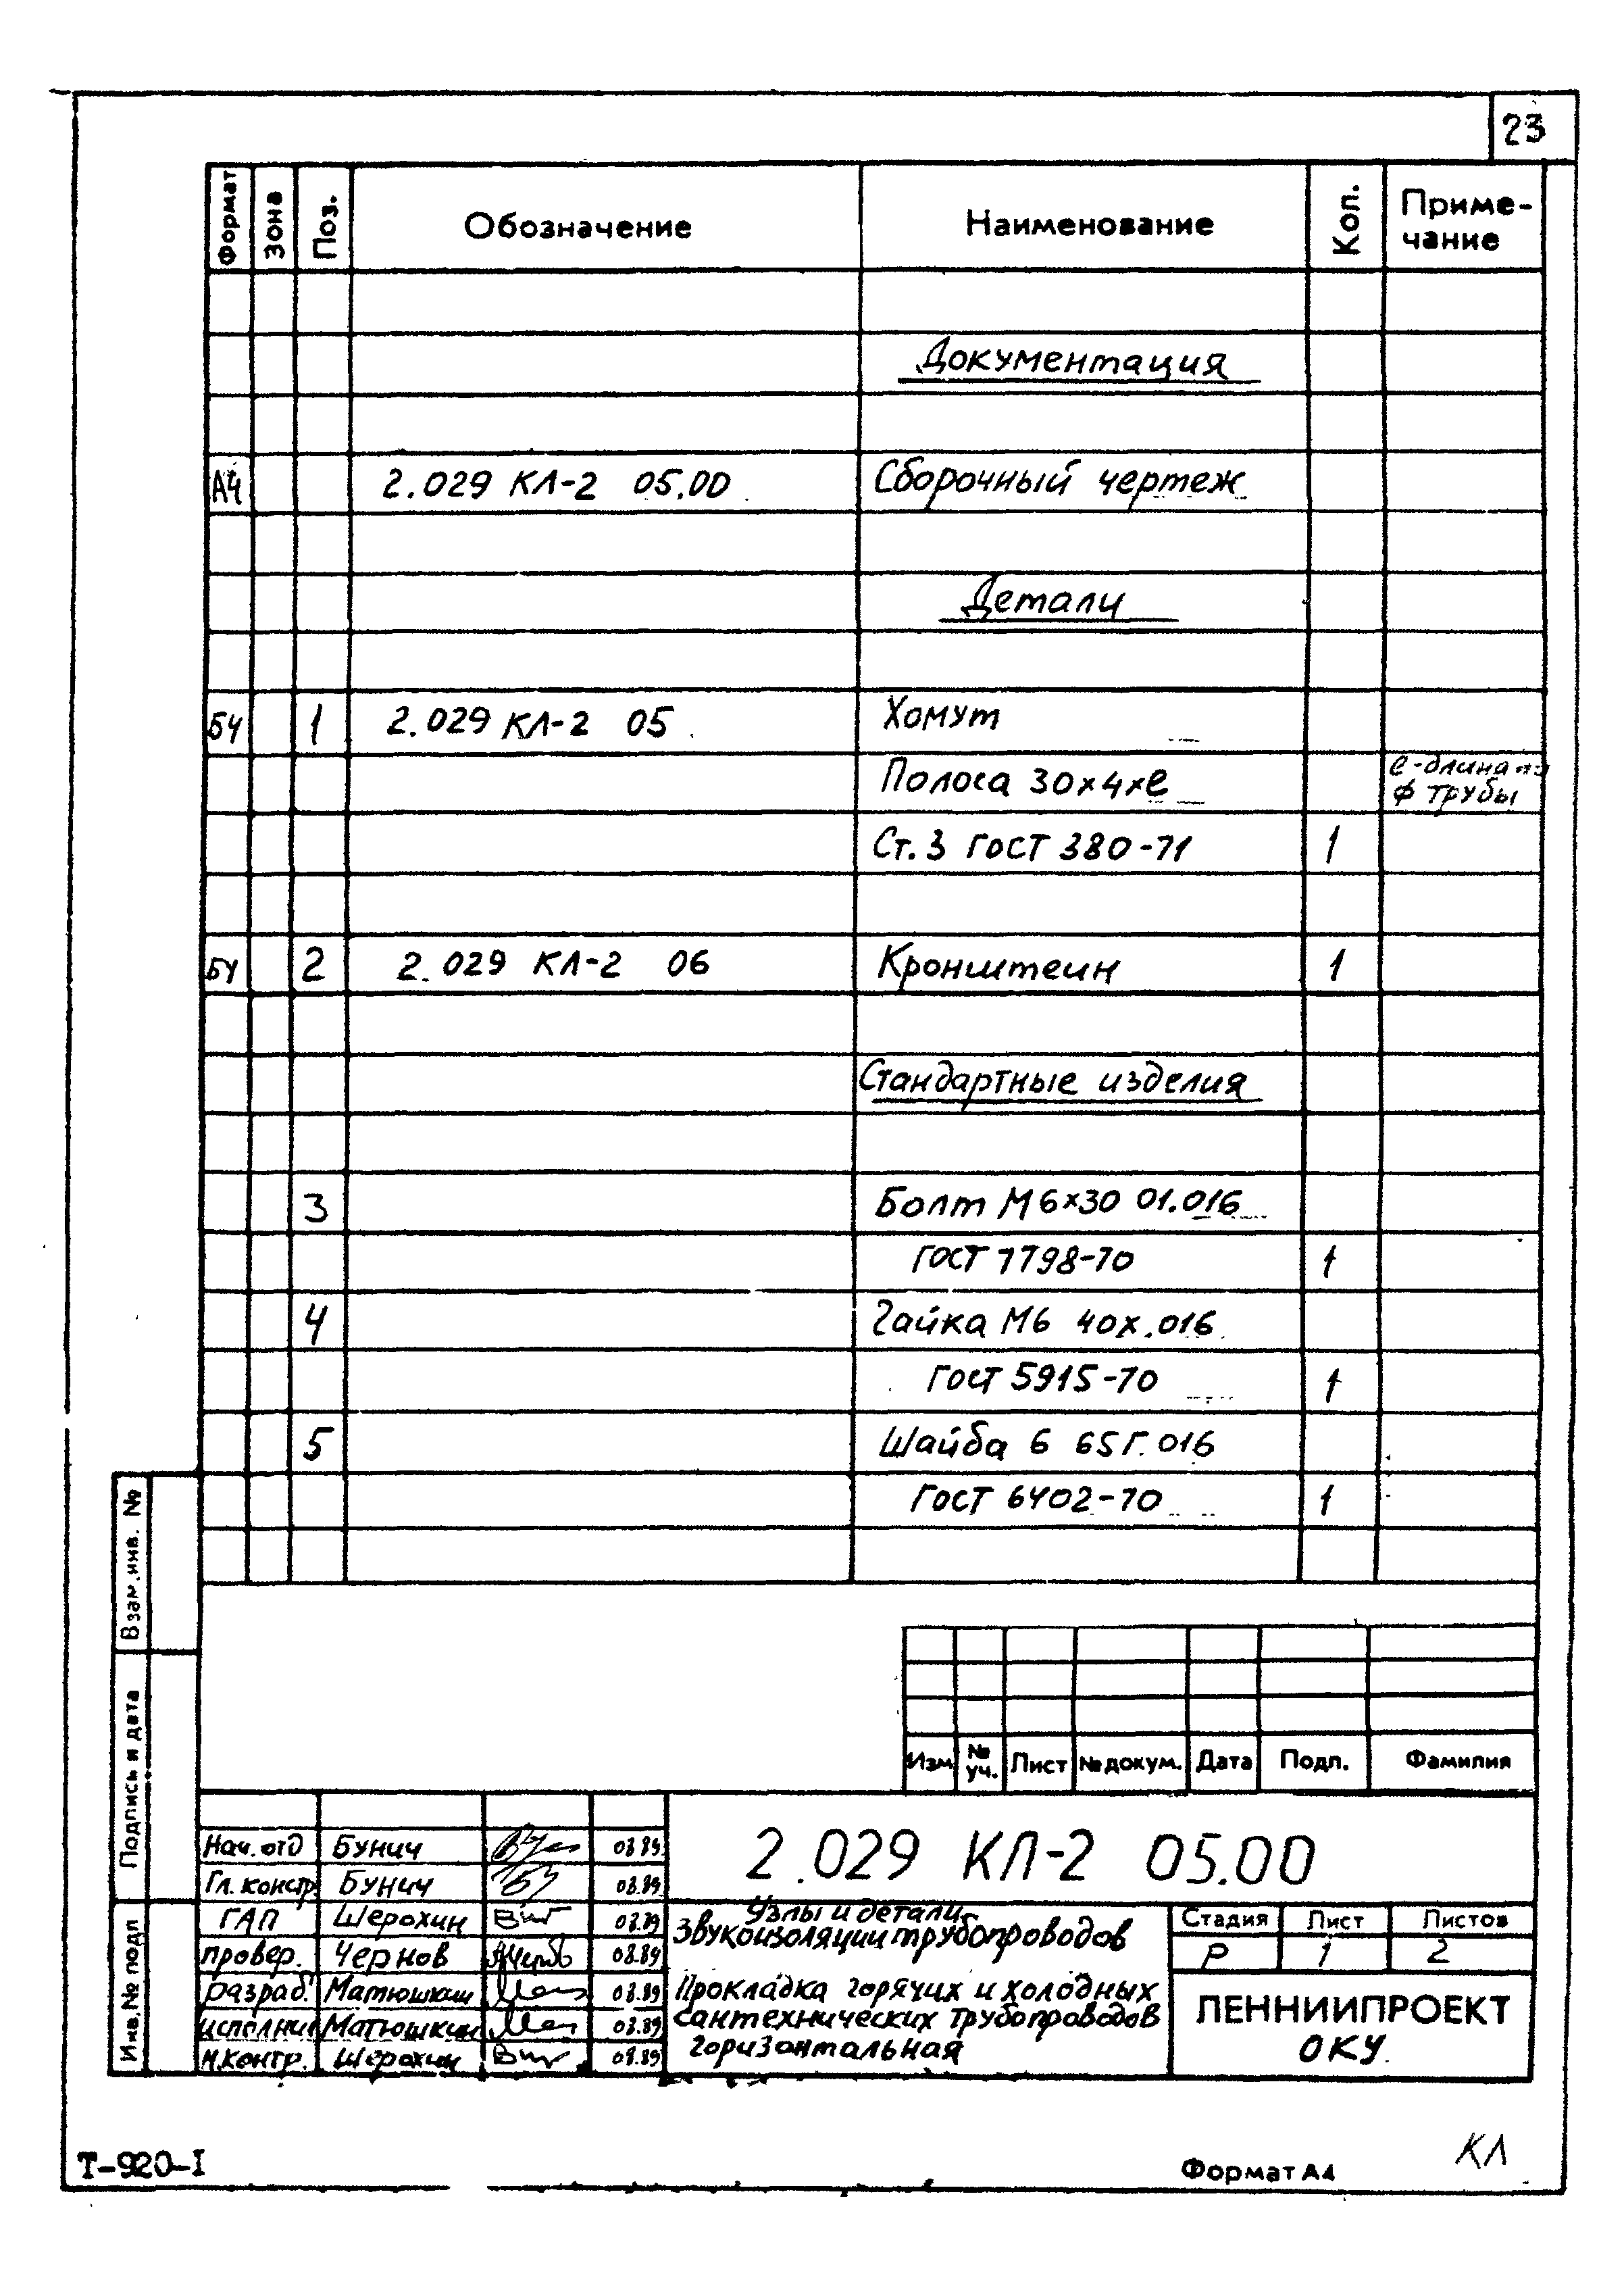 23
Формат Зона Поз. Обозначение Наименование Кол. Приме-
чание
Документация
А4 2.029 КЛ-2 05.00 Сборочный чертеж
Детали
БЧ 1 2.029 КЛ-2 05 Хомут
Полоса 30х4хℓ ℓ-длина по
ф трубы
Ст.3 ГОСТ 380-71 1
БЧ 2 2.029 КЛ-2 06 Кронштеин 1
Стандартные изделия
3 Болт М6х30 01.016
ГОСТ 7798-70 1
4 Гайка М6 40х.016
ГОСТ 5915-70 1
5 Шайба 6 65Г.016
ГОСТ 6402-70 1
Взам.инв. №
Подпись и дата
Инв.№ подл
Изм № уч. Лист №докум. Дата Подп. Фамилия
Нач.отд Бунич 08.89
Гл.констр Бунич 08.89
ГАП Шерохин 08.89
провер. Чернов 08.89
разраб. Матюшкин 08.89
исполнил Матюшкин 08.89
н.контр. Шерохин 08.89
2.029 КЛ-2 05.00
Узлы и детали
звукоизоляции трубопроводов
Прокладка горячих и холодных
сантехнических трубопроводов
горизонтальная
Стадия Лист Листов
Р 1 2
ЛЕННИИПРОЕКТ
ОКУ
Т-920-I
Формат А4
КЛ